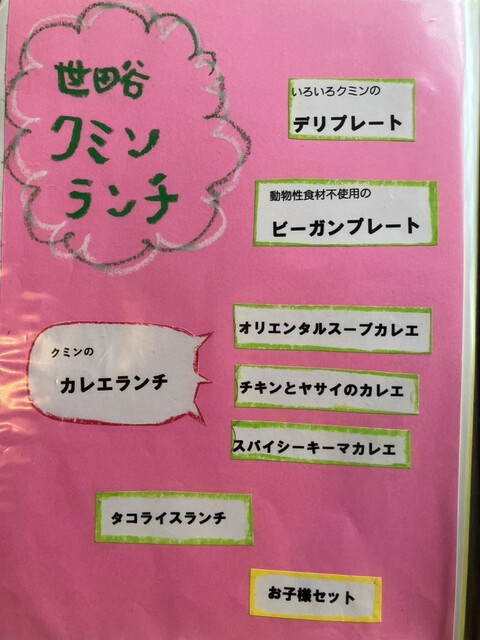 世田谷
クミン
ランチ
いろいろクミンの
デリプレート
動物性食材不使用の
ビーガンプレート
クミンの
カレエランチ
オリエンタルスープカレエ
チキンとヤサイのカレエ
スパイシーキーマカレエ
タコライスランチ
お子様セット